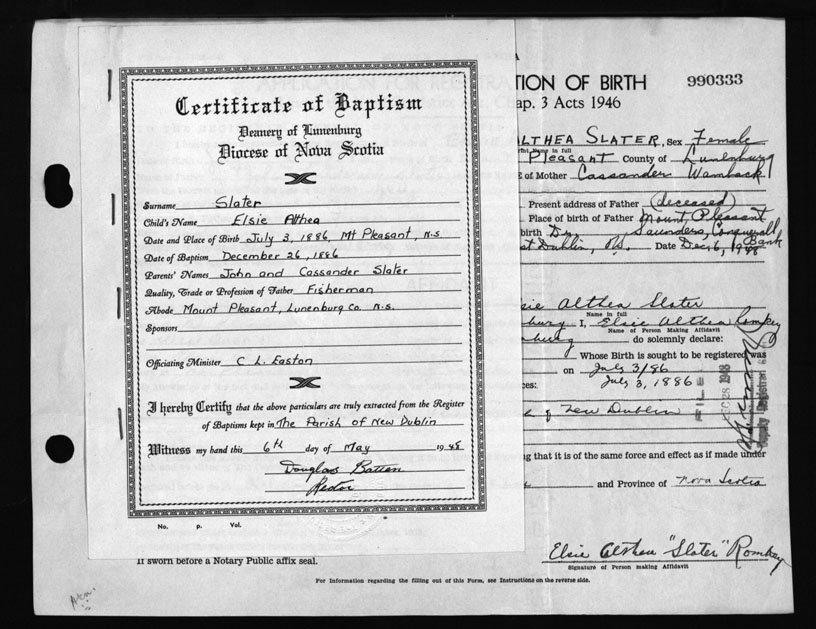 Certificate of Baptism
Deanery of Lunenburg
Diocese of Nova Scotia
Surname Slater
Child's Name Elsie Althea
Date and Place of Birth July 3, 1886, Mt Pleasant, N.S
Date of Baptism December 26, 1886
Parents' Names John and Cassander Slater
Quality, Trade or Profession of Father Fisherman
Abode Mount Pleasant, Lunenburg Co. N.S.
Sponsors
Officiating Minister C L. Easton
I hereby Certify that the above particulars are truly extracted from the Register
of Baptisms kept in The Parish of New Dublin
Witness my hand this 6th day of May 1948
Douglas Batten
Rector
No. P. Vol.
If sworn before a Notary Public affix seal.
For Information regarding the filling out of this Form, see Instructions on the reverse side.
TION OF BIRTH 990333
ap. 3 Acts 1946
ALTHEA SLATER, Sex Female
Name in full
Pleasant County of Lunenburg
of Mother Cassander Wamback
Present address of Father (deceased)
Place of birth of Father Mount Pleasant
birth Dr. Saunders, Conquerall Bank
st Dublin, N.S. Date Dec. 6, 1948
sie Althea Slater
Name in full
burg I, Elsie Althea Romkey
Name of Person Making Affidavit
burg do solemnly declare:
Whose Birth is sought to be registered was
on July 3/86
ces: July 3, 1886
of New Dublin
FILE
28 1948
Deputy Registrar
ng that it is of the same force and effect as if made under
and Province of Nova Scotia
Elsie Althea "Slater" Romkey
Signature of Person making Affidavit